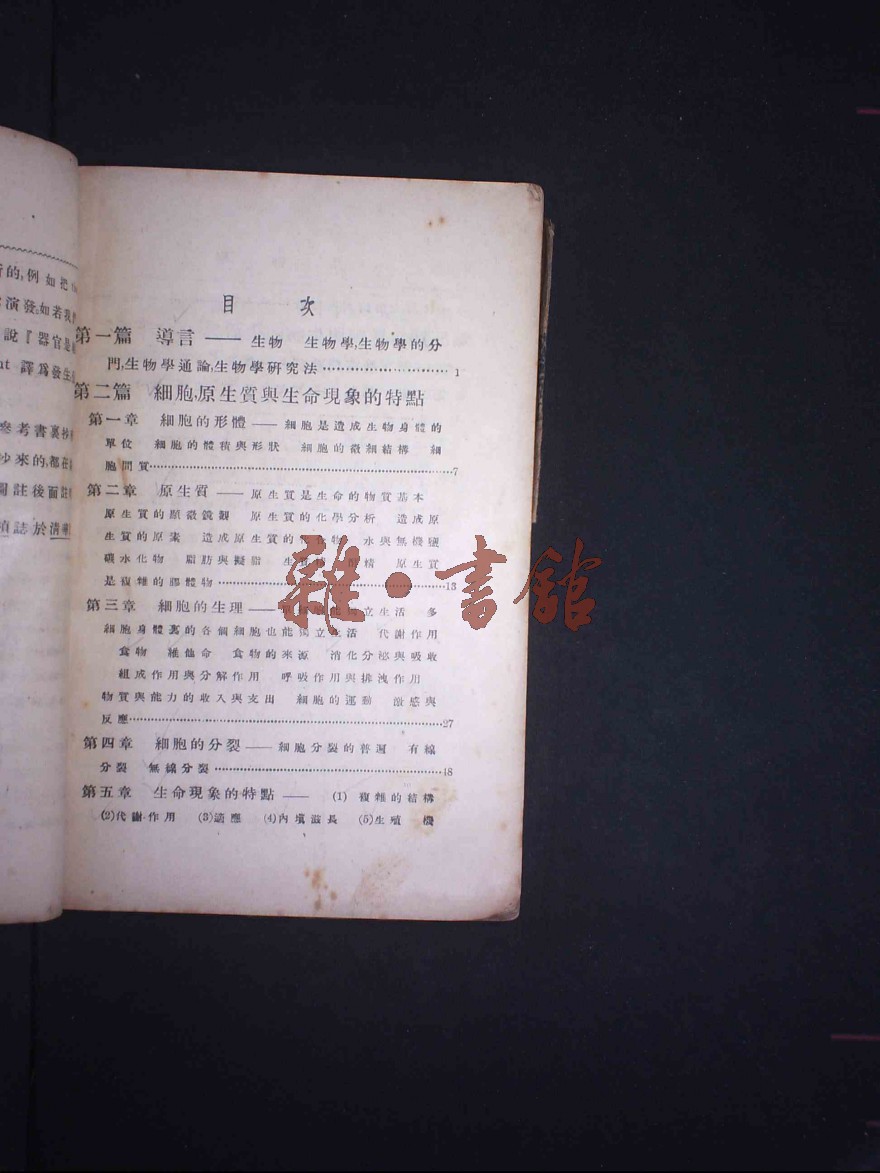 所的,例如把
演發,如若我
說『器官是
譯爲發生
參考書裏抄
抄來的,都在
圖註後面註
誌於清華
目 次
第一篇 導言 —— 生物 生物學,生物學的分
門,生物學通論,生物學研究法 1
第二篇 細胞,原生質與生命現象的特點
第一章 細胞的形體 —— 細胞是造成生物身體的
單位 細胞的體積與形狀 細胞的微細結構 細
胞間質 7
第二章 原生質 —— 原生質是生命的物質基本
原生質的顯微鏡觀 原生質的化學分析 造成原
生質的原素 造成原生質的 物 水與無機鹽
碳水化物 脂肪與擬脂 酵精 原生質
是複雜的膠體物 13
第三章 細胞的生理 —— 獨立生活 多
細胞身體裏的各個細胞也能獨立生活 代謝作用
食物 維他命 食物的來源 消化分泌與吸收
組成作用與分解作用 呼吸作用與排洩作用
物質與能力的收入與支出 細胞的運動 激感與
反應 27
第四章 細胞的分裂 —— 細胞分裂的普遍 有線
分裂 無線分裂 48
第五章 生命現象的特點 —— (1) 複雜的結構
(2)代謝作用 (3)適應 (4)內填滋長 (5)生殖 機
雜·書館